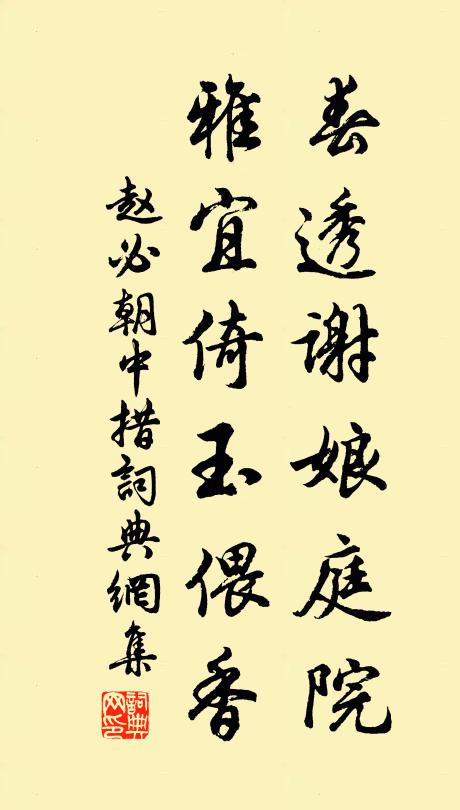 春透謝娘庭院
雅宜倚玉偎香
赵必朝中措詞典網集
詞典网印